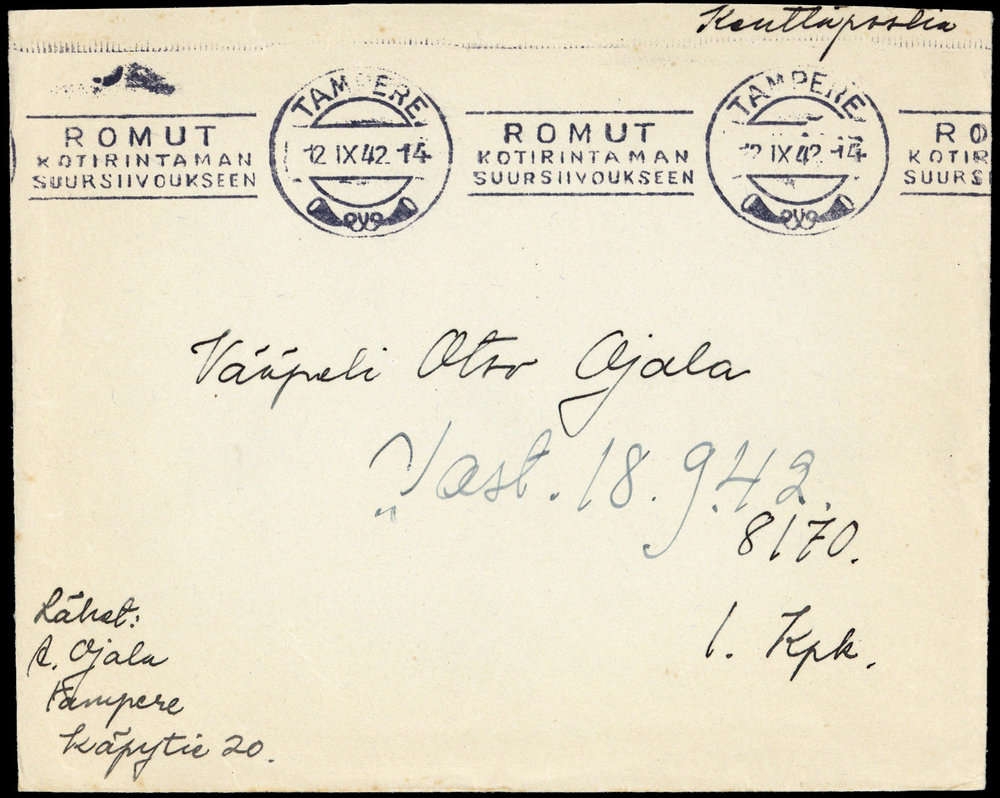 Kenttäpostia
TAMPERE
12 IX 42 -14
ROMUT
KOTIRINTAMAN
SUURSIIVOUKSEEN
TAMPERE
12 IX 42 -14
ROMUT
KOTIRINTAMAN
SUURSIIVOUKSEEN
RO
KOTIR
SUURS
Vääpeli Otso Ojala
Vast. 18.9.42.
8170.
1. Kpk.
Lähet:
A. Ojala
Tampere
Käpytie 20.